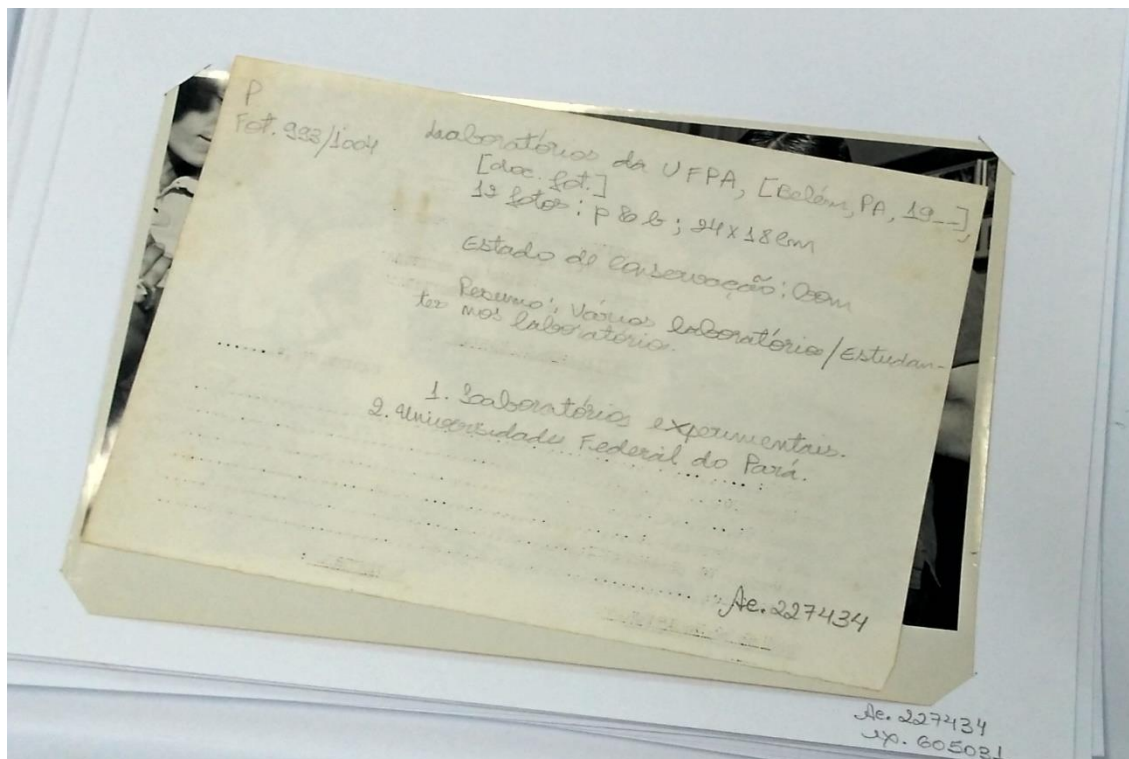 P
Fot. 993/1004
Laboratórios da UFPA, [Belém, PA, 19__],
[doc. fot.]
12 fotos : p & b ; 24 x 18 cm
Estado de Conservação: Bom
Resumo: Vários laboratório/Estudan-
tes nos laboratório.
1. Laboratórios experimentais.
2. Universidade Federal do Pará.
Ac. 227434
Ac. 227434
ex. 605031